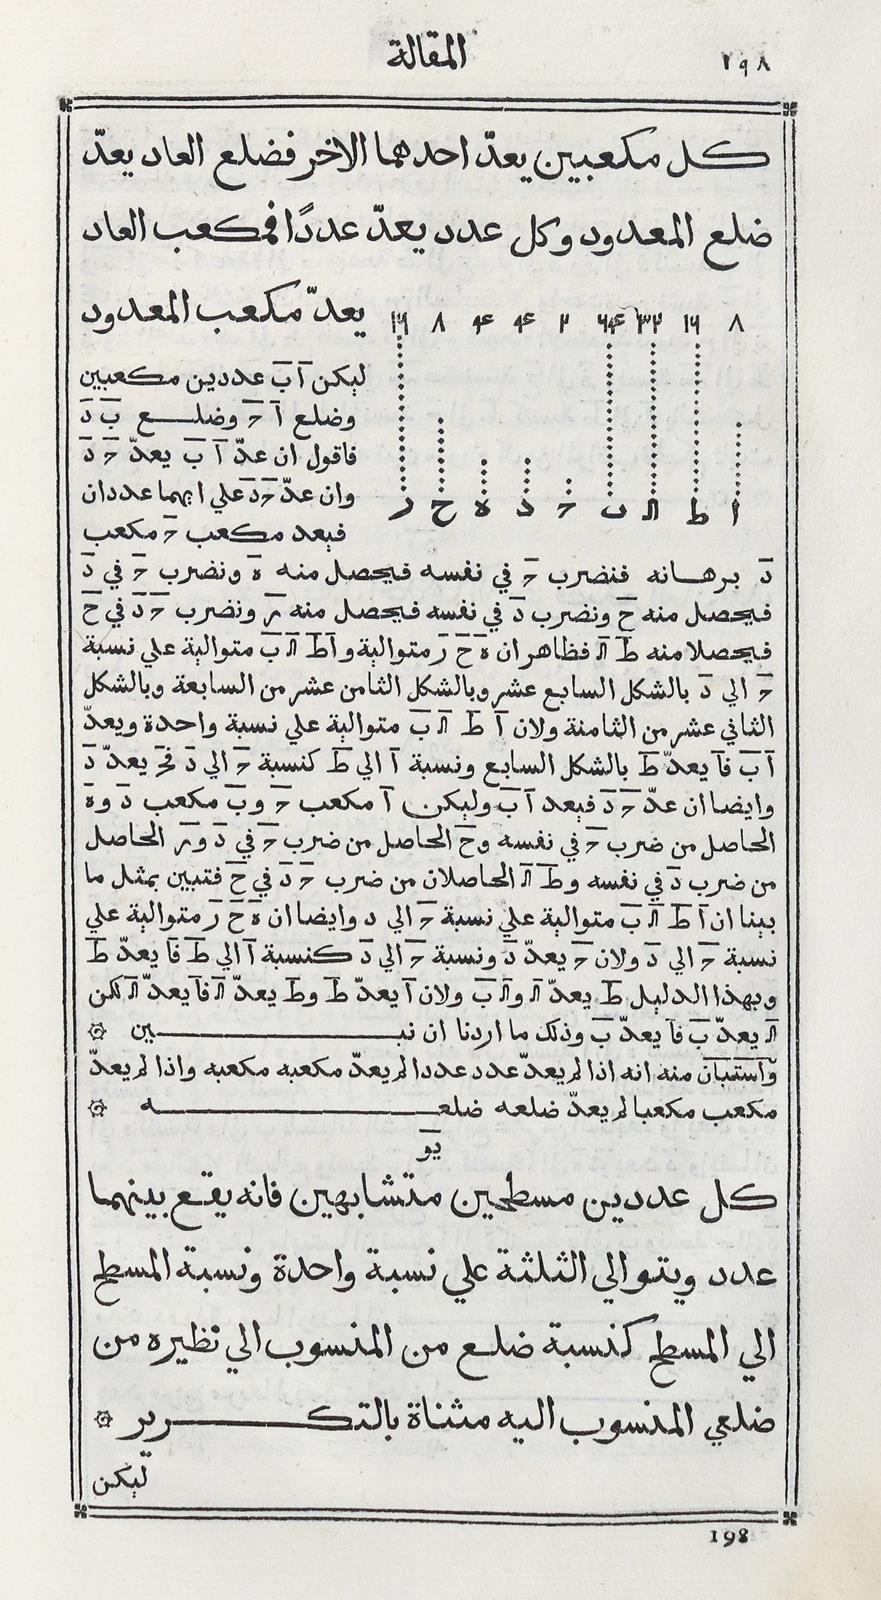 المقالة ١٩٨
كل مكعبين يعدّ احدهما الاخر فضلع العاد يعدّ
ضلع المعدود وكل عدد يعدّ عددًا فمكعب العاد
يعدّ مكعب المعدود
٨ ١٦ ٣٢ ٦۴ ٢ ۴ ۴ ٨ ١٦
ليكن آ بَ عددين مكعبين
وضلع آ حَ وضلع بَ دَ
فاقول ان عدّ آ بَ يعدّ حَ دَ
وان عدّ حَ دَ علي ايهما عددان
فيعد مكعب حَ مكعب
ا ط ك ب ح د ه ح ر
دَ برهانه فنضرب حَ في نفسه فيحصل منه هَ ونضرب حَ في دَ
فيحصل منه حَ ونضرب دَ في نفسه فيحصل منه رَ ونضرب حَ دَ في حَ
فيحصلا منه طَ كَ فظاهر ان هَ حَ رَ متوالية و آ طَ كَ بَ متوالية علي نسبة
حَ الي دَ بالشكل السابع عشر وبالشكل الثامن عشر من السابعة وبالشكل
الثاني عشر من الثامنة ولان آ طَ كَ بَ متوالية علي نسبة واحدة ويعدّ
آ بَ فآ يعدّ طَ بالشكل السابع ونسبة آ الي طَ كنسبة حَ الي دَ فحَ يعدّ دَ
وايضا ان عدّ حَ دَ فيعد آ بَ وليكن آ مكعب حَ وبَ مكعب دَ وهَ
الحاصل من ضرب حَ في نفسه وحَ الحاصل من ضرب حَ في دَ ورَ الحاصل
من ضرب دَ في نفسه وطَ كَ الحاصلان من ضرب حَ دَ في حَ فتبين بمثل ما
بينا ان آ طَ كَ بَ متوالية علي نسبة حَ الي د وايضا ان هَ حَ رَ متوالية علي
نسبة حَ الي دَ ولان حَ يعدّ دَ ونسبة حَ الي دَ كنسبة آ الي طَ فآ يعدّ طَ
وبهذا الدليل طَ يعدّ كَ وكَ بَ ولان آ يعدّ طَ وطَ يعدّ كَ فآ يعدّ كَ لكن
كَ يعدّ بَ فآ يعدّ بَ وذلك ما اردنا ان نبـــين ۞
وآستبان منه انه اذا لم يعدّ عدد عددا لم يعدّ مكعبه مكعبه واذا لم يعدّ
مكعب مكعبا لم يعدّ ضلعه ضلعـــه ۞
يَو
كل عددين مسطحين متشابهين فانه يقع بينهما
عدد ويتوالي الثلثة علي نسبة واحدة ونسبة المسطح
الي المسطح كنسبة ضلع من المنسوب الي نظيره من
ضلعي المنسوب اليه مثناة بالتكـــرير ۞
ليكن
198